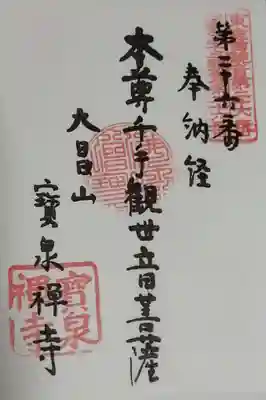 第二十六番
奉納経
本尊千手觀世音菩薩
大日山
寶泉禅寺
寶泉
禅寺